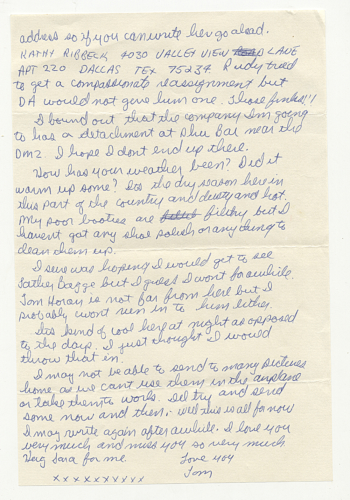 address so if you can write her go ahead.
KATHY RIBBECK 4030 VALLEY VIEW LANE
APT 220 DALLAS TEX 75234 Rudy tried
to get a compassionate reassignment but
DA would not give him one. Those finks!!!
I found out that the company I'm going
to has a detachment at Blue Bar near the
DMZ. I hope I dont end up there.
How has your weather been? Did it
warm up some? Its the dry season here in
this part of the country and dusty and hot.
My poor booties are filthy but I
havent got any shoe polish or anything to
clean them up.
I sure was hoping I would get to see
Father but I guess I wont for awhile.
Tom Horan is not far from here but I
probably wont run in to him either.
Its kind of cool here at night as opposed
to the days. I just thought I would
throw that in.
I may not be able to send to many pictures
home, as we cant use them in the airplane
or take them to work. Ill try and send
some now and then. Well this is all for now
I may write again after awhile. I love you
very much and miss you so very much
Hug Sara for me. Love you
Tom
x x x x x x x x x x